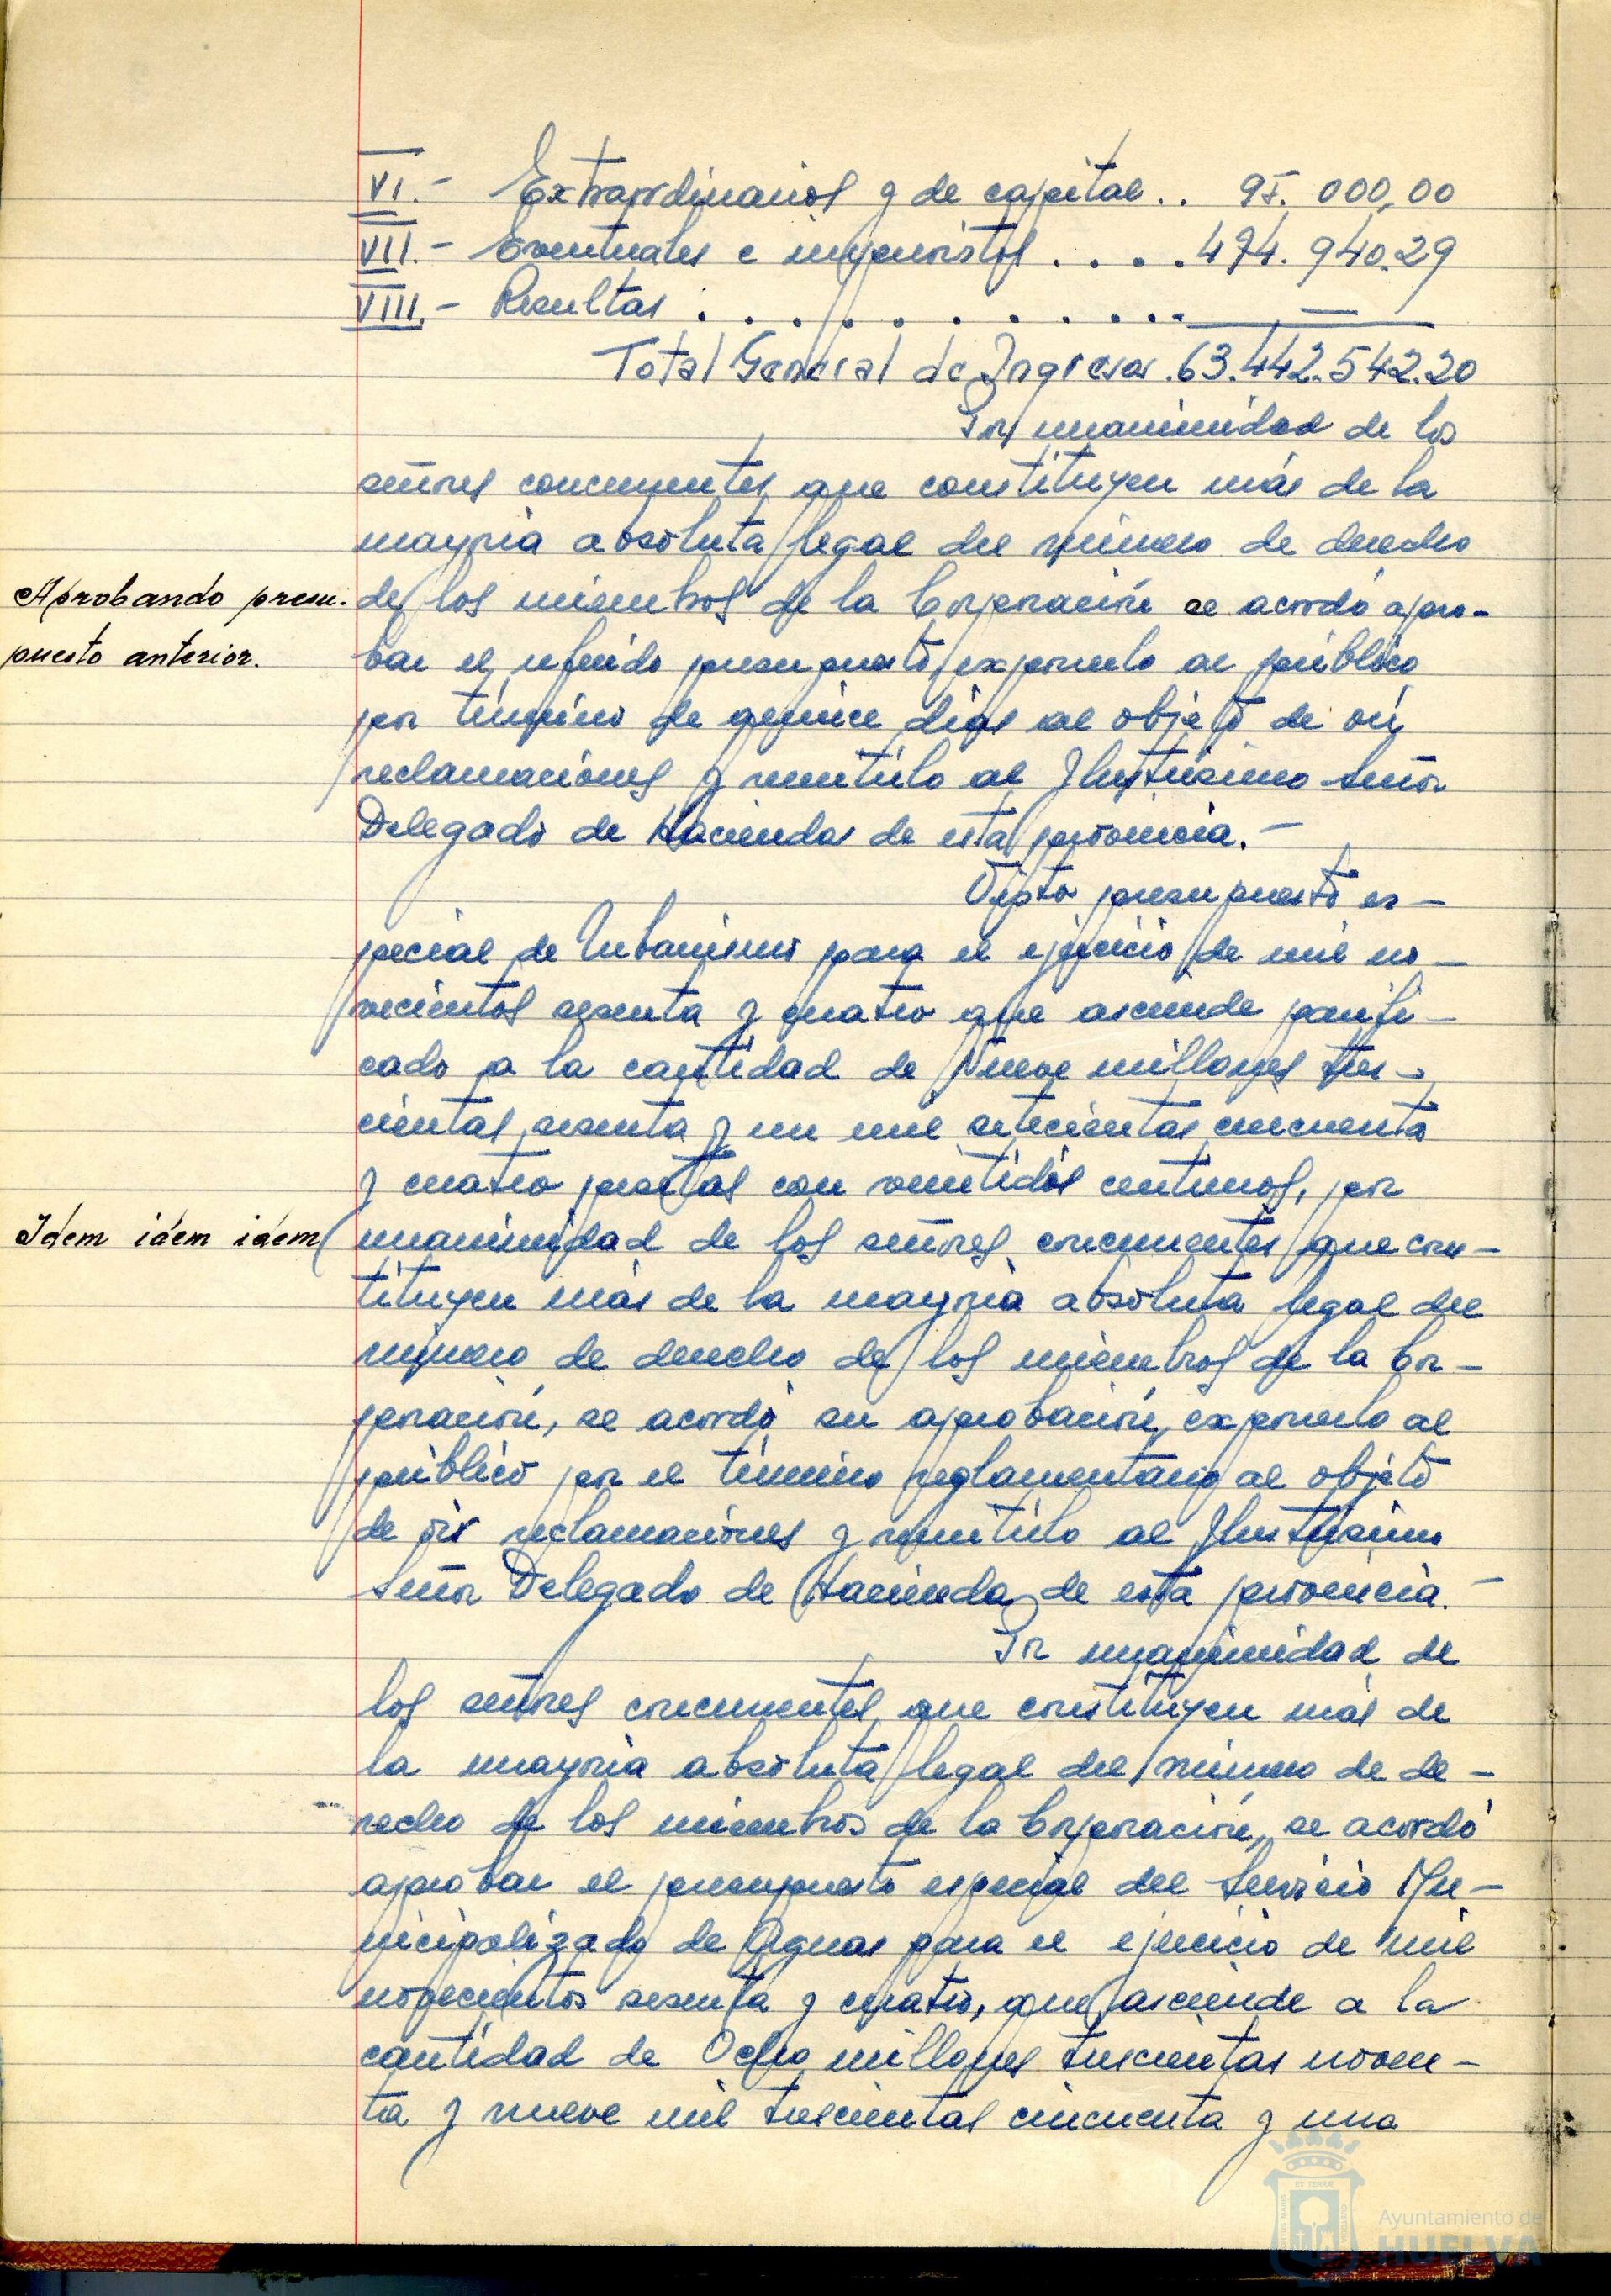 VI.- Extraordinarios y de capital.. 95.000,00
VII.- Eventuales e imprevistos . . . . 474.940.29
VIII.- Resultas . . . . . . . . . . . . —
Total General de Ingresos .63.442.542.20
Por unanimidad de los
señores concurrentes que constituyen más de la
mayoria absoluta legal del número de derecho
Aprobando presu-
puesto anterior.
de los miembros de la Corporación se acordó apro-
bar el referido presupuesto, exponerlo al público
por término de quince dias al objeto de oir
reclamaciones y remitirlo al Ilustrisimo Señor
Delegado de Hacienda de esta provincia.-
Visto presupuesto es-
pecial de Urbanismo para el ejercicio de mil no-
vecientos sesenta y cuatro que asciende panifi-
cado a la cantidad de Nueve millones tres-
cientas sesenta y un mil setecientas cincuenta
y cuatro pesetas con veintidós centimos, por
Idem idem idem
unanimidad de los señores concurrentes que cons-
tituyen más de la mayoria absoluta legal del
número de derecho de los miembros de la Cor-
poración, se acordó su aprobación, exponerlo al
público por el término reglamentario al objeto
de oir reclamaciones y remitirlo al Ilustrisimo
Señor Delegado de Hacienda de esta provincia.-
Por unanimidad de
los señores concurrentes que constituyen más de
la mayoria absoluta legal del número de de-
recho de los miembros de la Corporación, se acordó
aprobar el presupuesto especial del Servicio Mu-
nicipalizado de Aguas para el ejercicio de mil
novecientos sesenta y cuatro, que asciende a la
cantidad de Ocho millones trescientas noven-
ta y nueve mil trescientas cincuenta y una
Ayuntamiento de
HUELVA